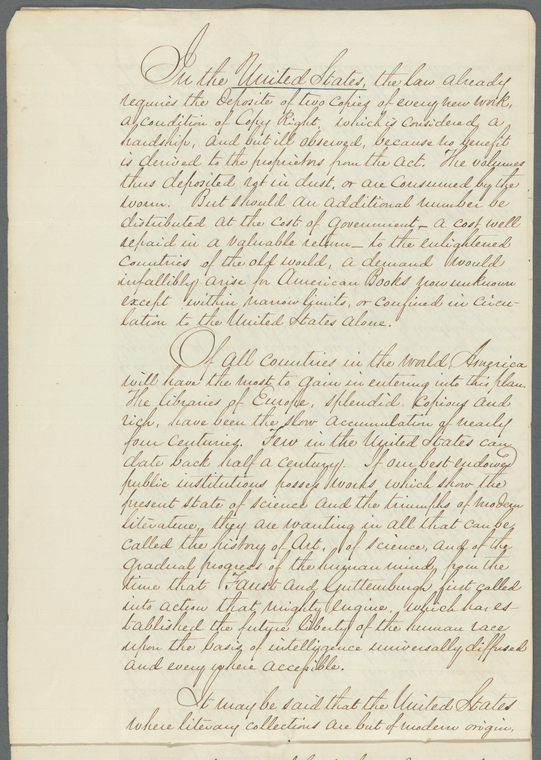 In the United States, the law already
requires the deposite of two copies of every new work,
a condition of Copy Right, which is considered a
hardship, and but ill observed, because no benefit
is derived to the proprietors from the act. The volumes
thus deposited rot in dust, or are consumed by the
worm. But should an additional number be
distributed at the cost of Government - a cost well
repaid in a valuable return - to the enlightened
countries of the old world, a demand would
infallibly arise for American Books now unknown
except within narrow limits, or confined in circu-
lation to the United States alone.
Of all countries in the world, America
will have the most to gain in entering into this plan.
The libraries of Europe, splendid, copious and
rich, have been the slow accumulation of nearly
four centuries. Few in the United States can
date back half a century. If our best endowed
public institutions possess works which show the
present state of science and the triumphs of modern
literature, they are wanting in all that can be
called the history of Art, of science, and of the
gradual progress of the human mind, from the
time that Faust and Guttemburgh first called
into action that mighty engine, which has es-
tablished the future liberty of the human race
upon the basis of intelligence universally diffused
and every where accessible.
It may be said that the United States
where literary collections are but of modern origin,